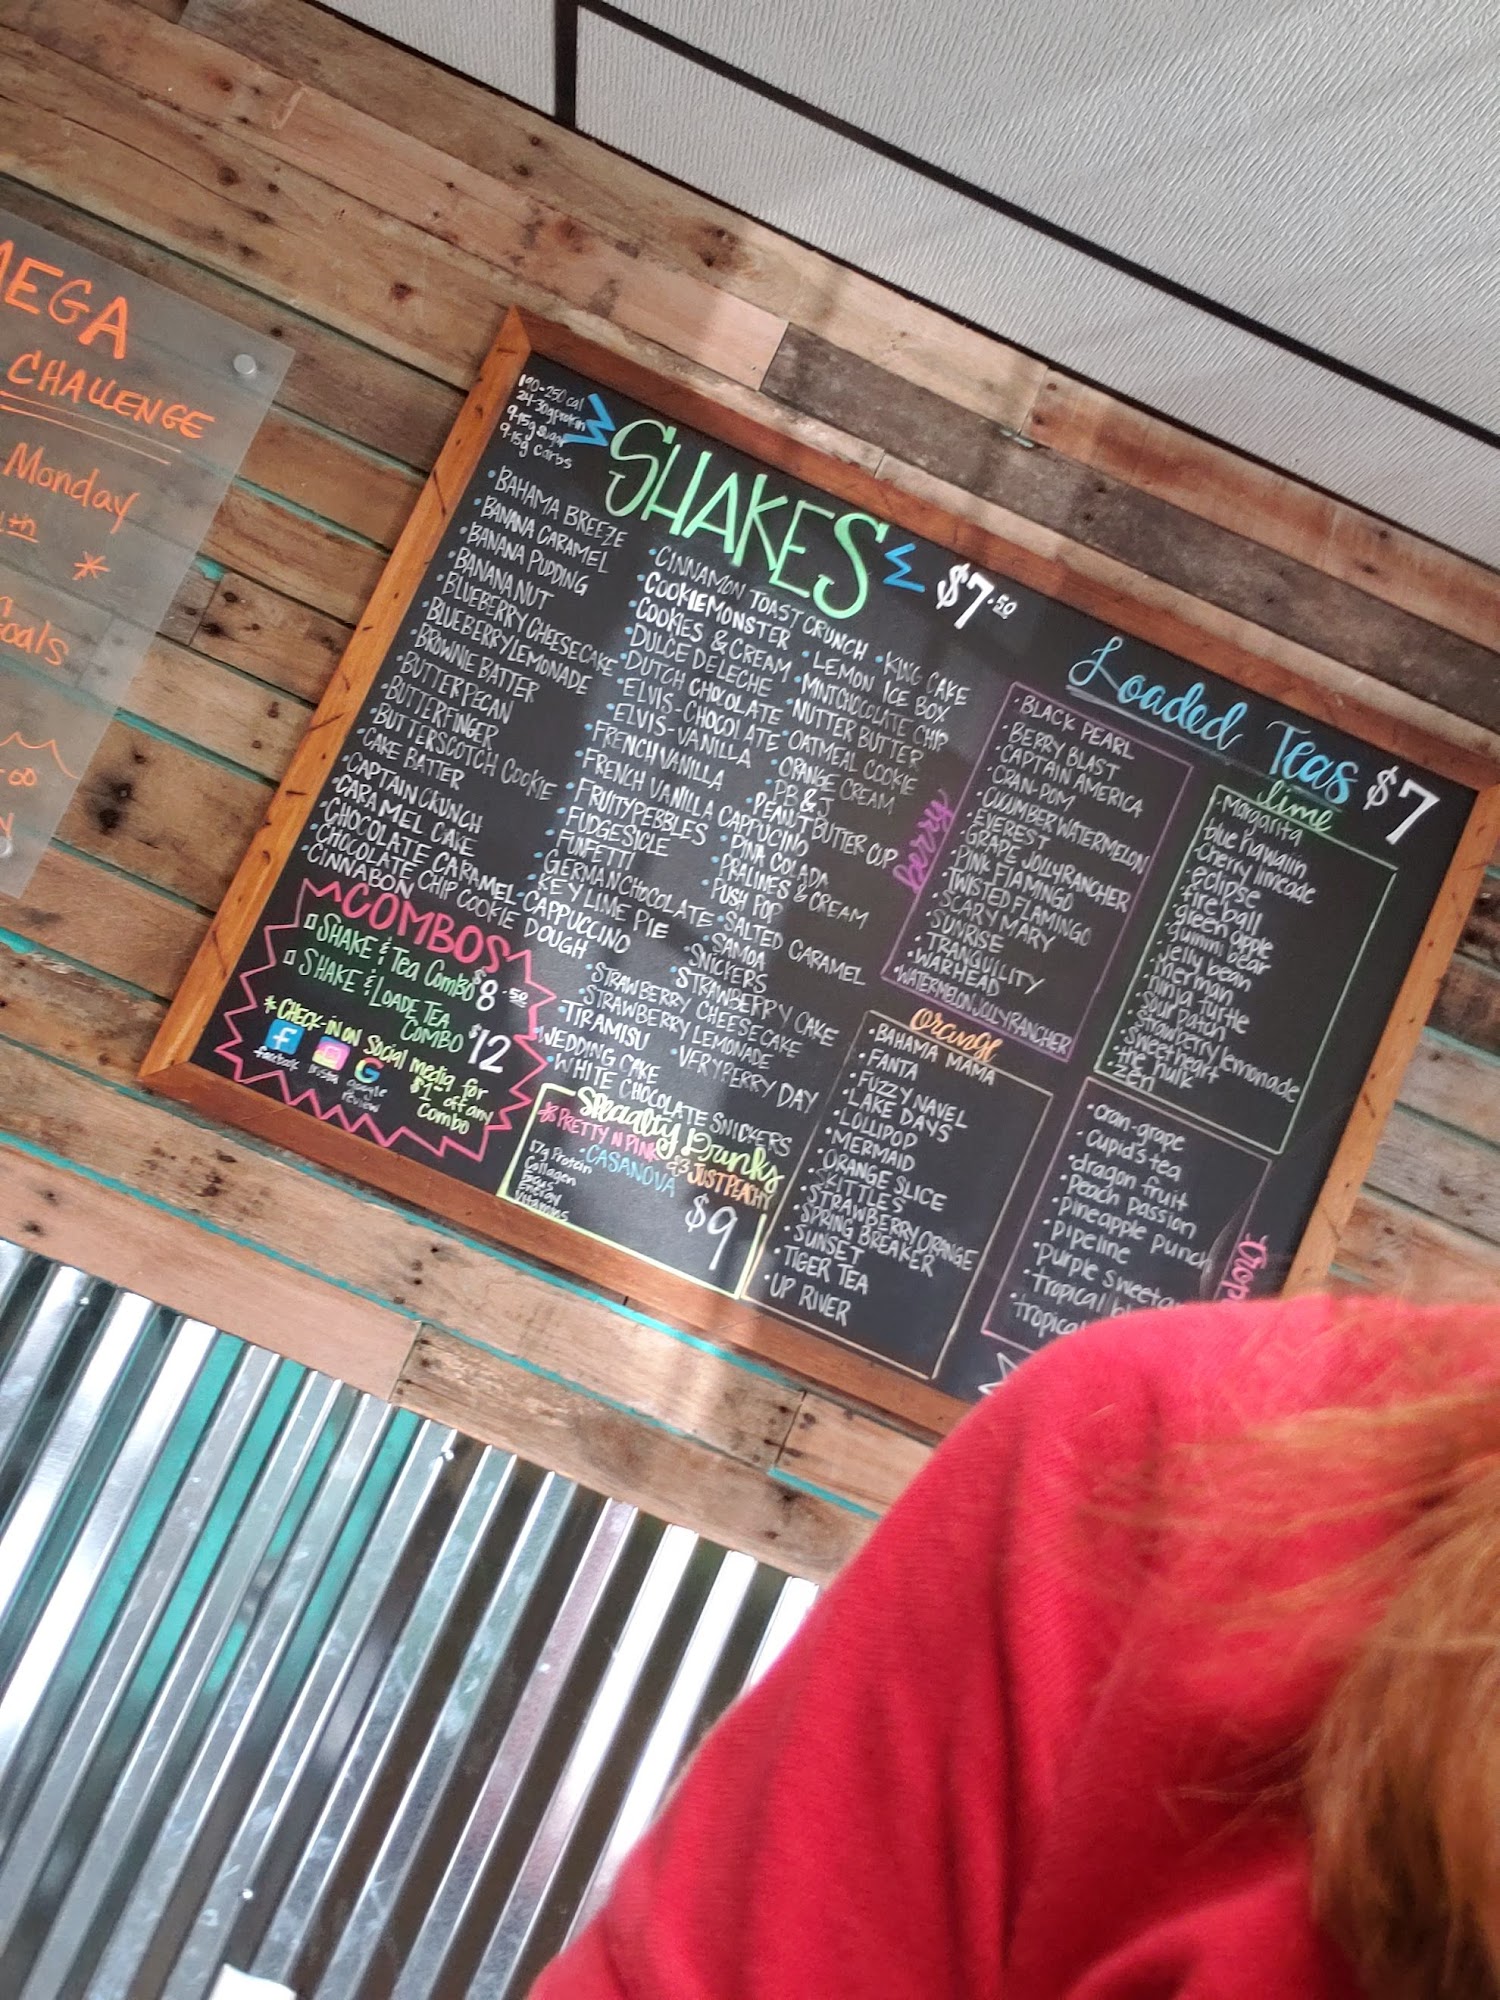 MEGA
CHALLENGE
Monday
*
Goals
190-250 cal
24-30g protein
9-15g sugar
9-15g carbs
SHAKES $7.50
• BAHAMA BREEZE
• BANANA CARAMEL
• BANANA PUDDING
• BANANA NUT
• BLUEBERRY CHEESECAKE
• BLUEBERRY LEMONADE
• BROWNIE BATTER
• BUTTER PECAN
• BUTTERFINGER
• BUTTERSCOTCH COOKIE
• CAKE BATTER
• CAPTAIN CRUNCH
• CARAMEL CAKE
• CHOCOLATE CARAMEL-CAPPUCCINO
• CHOCOLATE CHIP COOKIE DOUGH
• CINNABON
• CINNAMON TOAST CRUNCH
• COOKIE MONSTER
• COOKIES & CREAM
• DULCE DE LECHE
• DUTCH CHOCOLATE
• ELVIS-CHOCOLATE
• ELVIS-VANILLA
• FRENCH VANILLA
• FRENCH VANILLA CAPPUCINO
• FRUITY PEBBLES
• FUDGESICLE
• FUNFETTI
• GERMAN CHOCOLATE
• KEY LIME PIE
• KING CAKE
• LEMON ICE BOX
• MINT CHOCOLATE CHIP
• NUTTER BUTTER
• OATMEAL COOKIE
• ORANGE CREAM
• PB & J
• PEANUT BUTTER CUP
• PINA COLADA
• PRALINES & CREAM
• PUSH POP
• SALTED CARAMEL
• SAMOA
• SNICKERS
• STRAWBERRY CAKE
• STRAWBERRY CHEESECAKE
• STRAWBERRY LEMONADE
• TIRAMISU
• VERY BERRY DAY
• WEDDING CAKE
• WHITE CHOCOLATE SNICKERS
COMBOS
SHAKE & TEA COMBO $8.50
SHAKE & LOADE TEA COMBO $12
* CHECK-IN ON Social media for
$1- off any
Combo
facebook
insta
google
review
Specialty Drinks
PRETTY N PINK
& JUST PEACHY
• CASANOVA
17g Protein
Collagen
Focus
Energy
Vitamins
$9
Loaded Teas $7
Berry
• BLACK PEARL
• BERRY BLAST
• CAPTAIN AMERICA
• CRAN-POM
• CUCUMBER WATERMELON
• EVEREST
• GRAPE JOLLY RANCHER
• PINK FLAMINGO
• TWISTED FLAMINGO
• SCARY MARY
• SUNRISE
• TRANQUILITY
• WARHEAD
• WATERMELON JOLLY RANCHER
lime
• Margarita
• blue Hawaiin
• Cherry limeade
• eclipse
• fire ball
• green apple
• gummi bear
• jelly bean
• merman
• ninja turtle
• Sour patch
• Strawberry lemonade
• Sweetheart
• the hulk
• zen
orange
• BAHAMA MAMA
• FANTA
• FUZZY NAVEL
• LAKE DAYS
• LOLLIPOP
• MERMAID
• ORANGE SLICE
• SKITTLES
• STRAWBERRY ORANGE
• SPRING BREAKER
• SUNSET
• TIGER TEA
• UP RIVER
Trop
• cran-grape
• Cupid's tea
• dragon fruit
• Peach passion
• pineapple punch
• pipeline
• Purple Sweet
• Tropical
• tropical